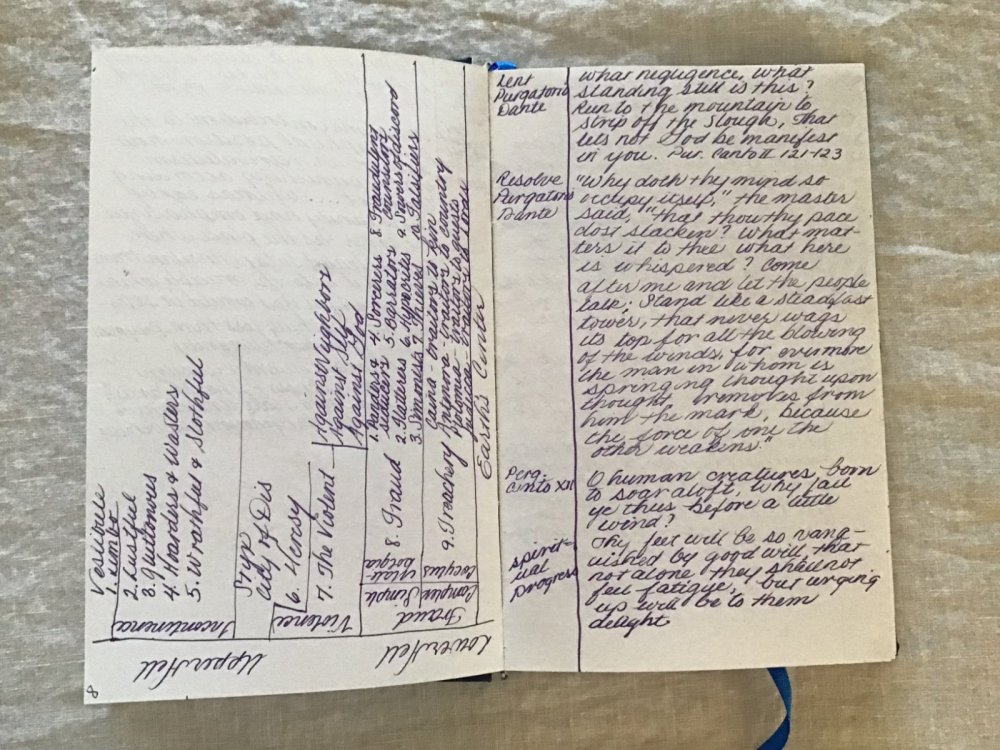 8
Vestibule
1. Limbo
2. Lustful
3. Gluttonous
4. Hoarders & Wasters
5. Wrathful & Slothful
Incontinence
Upper Hell
Styx
City of Dis
6. Heresy
Violence
7. The Violent
Against Neighbors
Against Self
Against God
Violence
Lower Hell
Fraud
Simple
Complex
8. Fraud
1. Panders &
seducers
2. Flatterers
3. Simonists
4. Sorcerers
5. Barrators
6. Hypocrites
7. Thieves
8. Fraudulent
counselors
9. Sowers of discord
10. Falsifiers
Cocytus
9. Treachery
Caina - traitors to kin
Antenora - traitors to country
traitors to guests
traitors to lords
Earth's Center
Lent
Purgatorio
Dante
What negligence, what
standing still is this?
Run to the mountain to
strip off the slough, that
lets not God be manifest
in you. Pur. Canto II 121-123
Resolve
Purgatorio
Dante
"Why doth thy mind so
occupy itself," the master
said, "that thou thy pace
dost slacken? What mat-
ters it to thee what here
is whispered? Come
after me and let the people
talk; Stand like a steadfast
tower, that never wags
its top for all the blowing
of the winds, for evermore
the man in whom is
springing thought upon
thought, removes from
him the mark, because
the force of one the
other weakens."
Purg.
Canto XII
O human creatures born
to soar aloft, Why fall
ye thus before a little
wind?
spirit-
ual
progress
Thy feet will be so vanq-
uished by good will, that
not alone they shall not
feel fatigue, but urging
up will be to them
delight